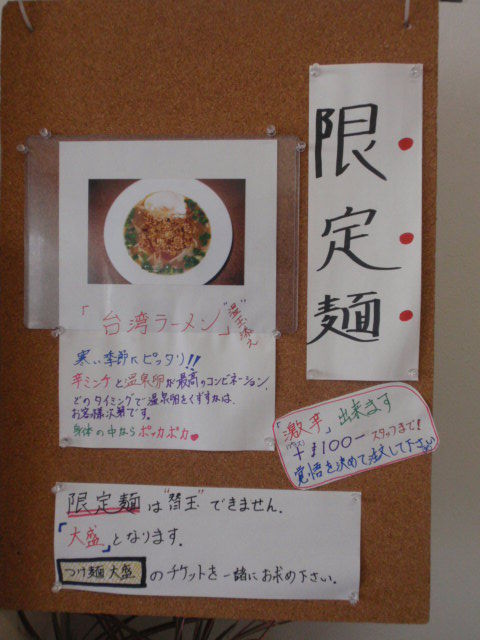 限定麺
「台湾ラーメン」
"温玉添え"
寒い季節にピッタリ!!
辛ミンチと温泉卵が最高のコンビネーション。
どのタイミングで温泉卵をくずすかは、
お客様次第です。
身体の中からポッカポカ
「激辛」出来ます
(プラス)
+$100- スタッフまで!
覚悟を決めて注文して下さい
限定麺は"替玉"できません。
「大盛」となります。
つけ麺 大盛 のチケットを一緒にお求め下さい。